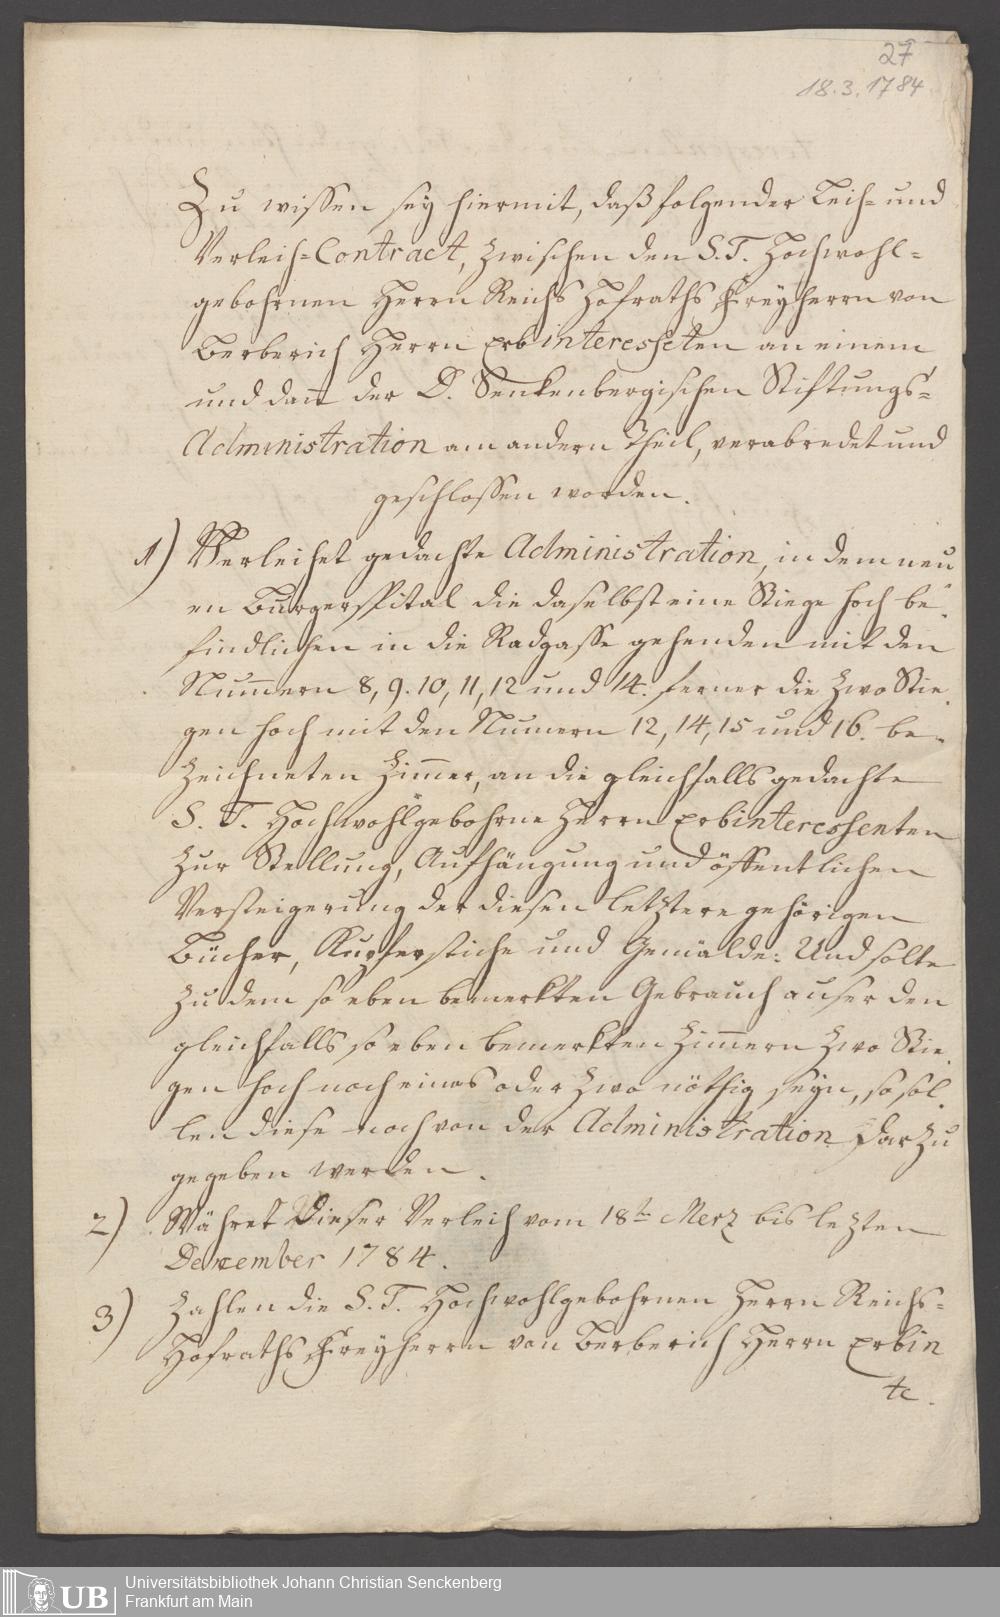 27
18.3.1784
Zu wissen sey hiermit, daß folgender Leih- und
Verleih-Contract, zwischen den S. T. Hochwohl-
gebohrnen Herrn Reichs Hofraths Freyherrn von
Berberich Herrn Erbinteresseten an einem
und dañ der D. Senkenbergischen Stiftungs-
Administration am andern Theil, verabredet und
geschlossen worden.
1) Verleihet gedachte Administration, in dem neu
en Burgerspital die daselbst eine Stiege hoch be-
findlichen in die Radgasse gehenden mit den
Num̃ern 8, 9. 10, 11, 12 und 14. ferner die zwo Stie-
gen hoch mit den Numern 12, 14, 15 und 16. be-
zeichneten Zim̃er, an die gleichfalls gedachte
S. T. Hochwohlgebohrne Herrn Erbinteressenten
zur Stellung, Aufhängung und öffentlichen
Versteigerung der diesen letztere gehörigen
Bücher, Kupferstiche und Gemälde: Und solte
zu dem so eben bemerkten Gebrauch auser den
gleichfalls so eben bemerkten Zim̃ern zwo Stie-
gen hoch noch eines oder zwo nöthig seyn, so sol-
len diese noch von der Administration darzu
gegeben werden.
2) Währet dieser Verleih vom 18tn Merz bis lezten
December 1784.
3) Zahlen die S. T. Hochwohlgebohrnen Herrn Reichs-
Hofraths Freyherrn von Berberich Herrn Erbin
te.
UB
Universitätsbibliothek Johann Christian Senckenberg
Frankfurt am Main